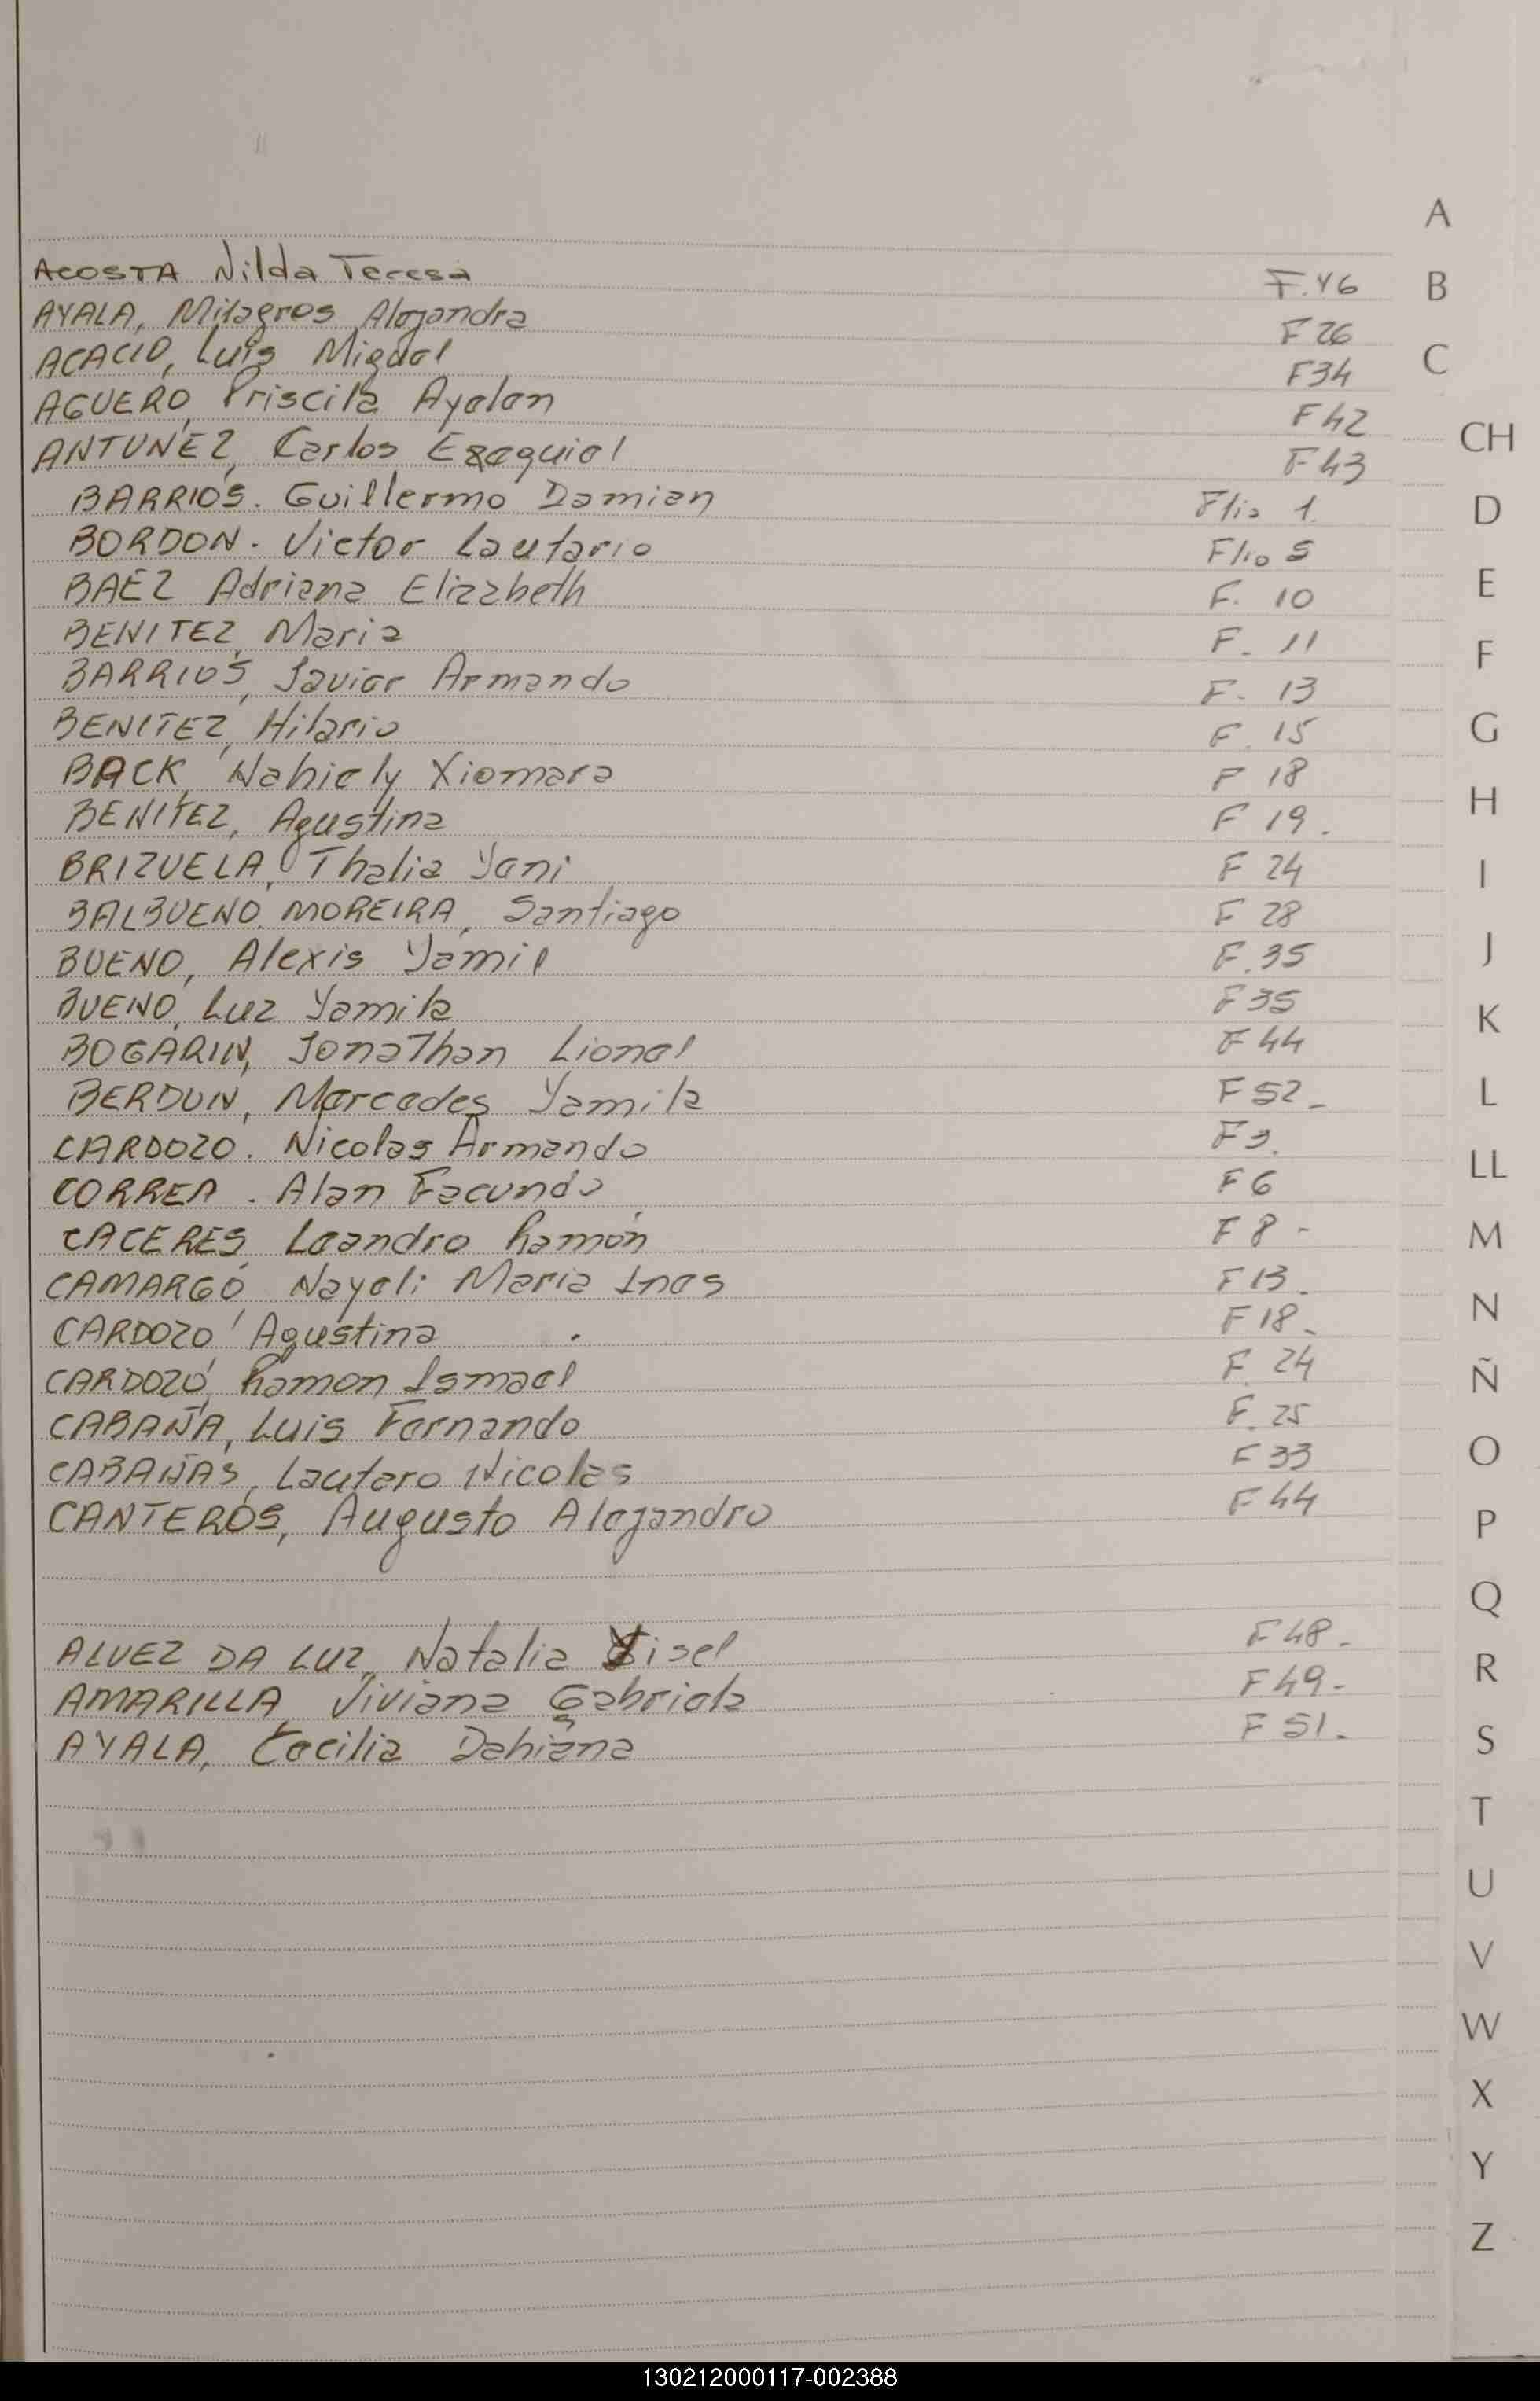 A
ACOSTA Nilda Teresa F.46
B
AYALA, Milagros Alejandra F 26
ACACIO, Luis Miguel F34
C
AGUERO, Priscila Ayelen F42
ANTUNEZ, Carlos Ezequiel F43
CH
BARRIOS. Guillermo Damian Flio 1.
D
BORDON. Victor Lautario Flio 5
BAEZ Adriana Elizabeth F. 10
E
BENITEZ, Maria F. 11
F
BARRIOS, Javier Armando F. 13
BENITEZ, Hilario F. 15
G
BACK, Nahiely Xiomara F 18
H
BENITEZ, Agustina F 19.
BRIZUELA, Thalia Yani F 24
I
BALBUENO MOREIRA, Santiago F 28
J
BUENO, Alexis Yamil F.35
BUENO, Luz Yamila F35
K
BOGARIN, Jonathan Lionel F 44
BERDUN, Mercedes Yamila F52-
L
CARDOZO. Nicolas Armando F3.
LL
CORREA. Alan Facundo F6
CACERES, Leandro Ramón F 8-
M
CAMARGO, Nayeli Maria Ines F13.
N
CARDOZO, Agustina F18-
CARDOZO, Ramon Ismael F. 24
Ñ
CABAÑA, Luis Fernando F. 25
CABAÑAS, Lautaro Nicolas F33
O
CANTEROS, Augusto Alejandro F44
P
Q
ALVEZ DA LUZ, Natalia Yisel F48-
R
AMARILLA, Viviana Gabriela F49-
AYALA, Cecilia Dahiana F 51-
S
T
U
V
W
X
Y
Z
130212000117-002388